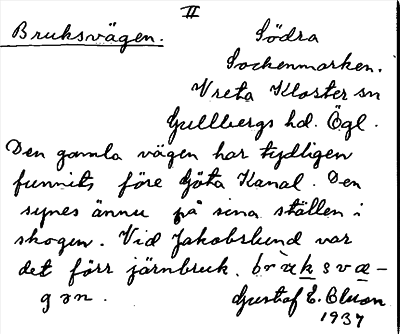 II
Bruksvägen.
Södra
Sockenmarken.
Vreta Kloster sn
Gullbergs hd. Ögl.
Den gamla vägen har tydligen
funnits före Göta Kanal. Den
synes ännu på sina ställen i
skogen. Vid Jakobslund var
det förr järnbruk.
Gustaf E. Bluon
1937